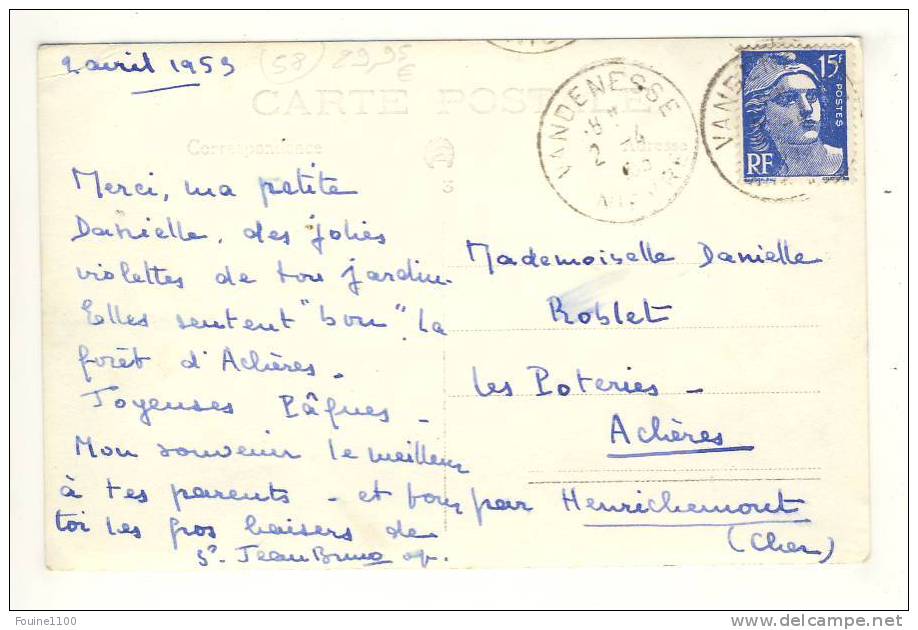 2 avril 1953
(58) 29,95 €
CARTE POSTALE
Correspondance
Adresse
3
VANDENESSE
8H
2 4
NIEVRE
VAND
15F
POSTES
RF
Merci, ma petite
Danielle, des jolies
violettes de ton jardin.
Elles sentent "bon" la
forêt d'Achères.
Joyeuses Pâques -
Mon souvenir le meilleur
à tes parents - et pour
toi les gros baisers de
Sr. Jean Bruno op.
Mademoiselle Danielle
Roblet
les Poteries -
Achères
par Henrichemont
(Cher)
Founine1100
www.delcampe.net